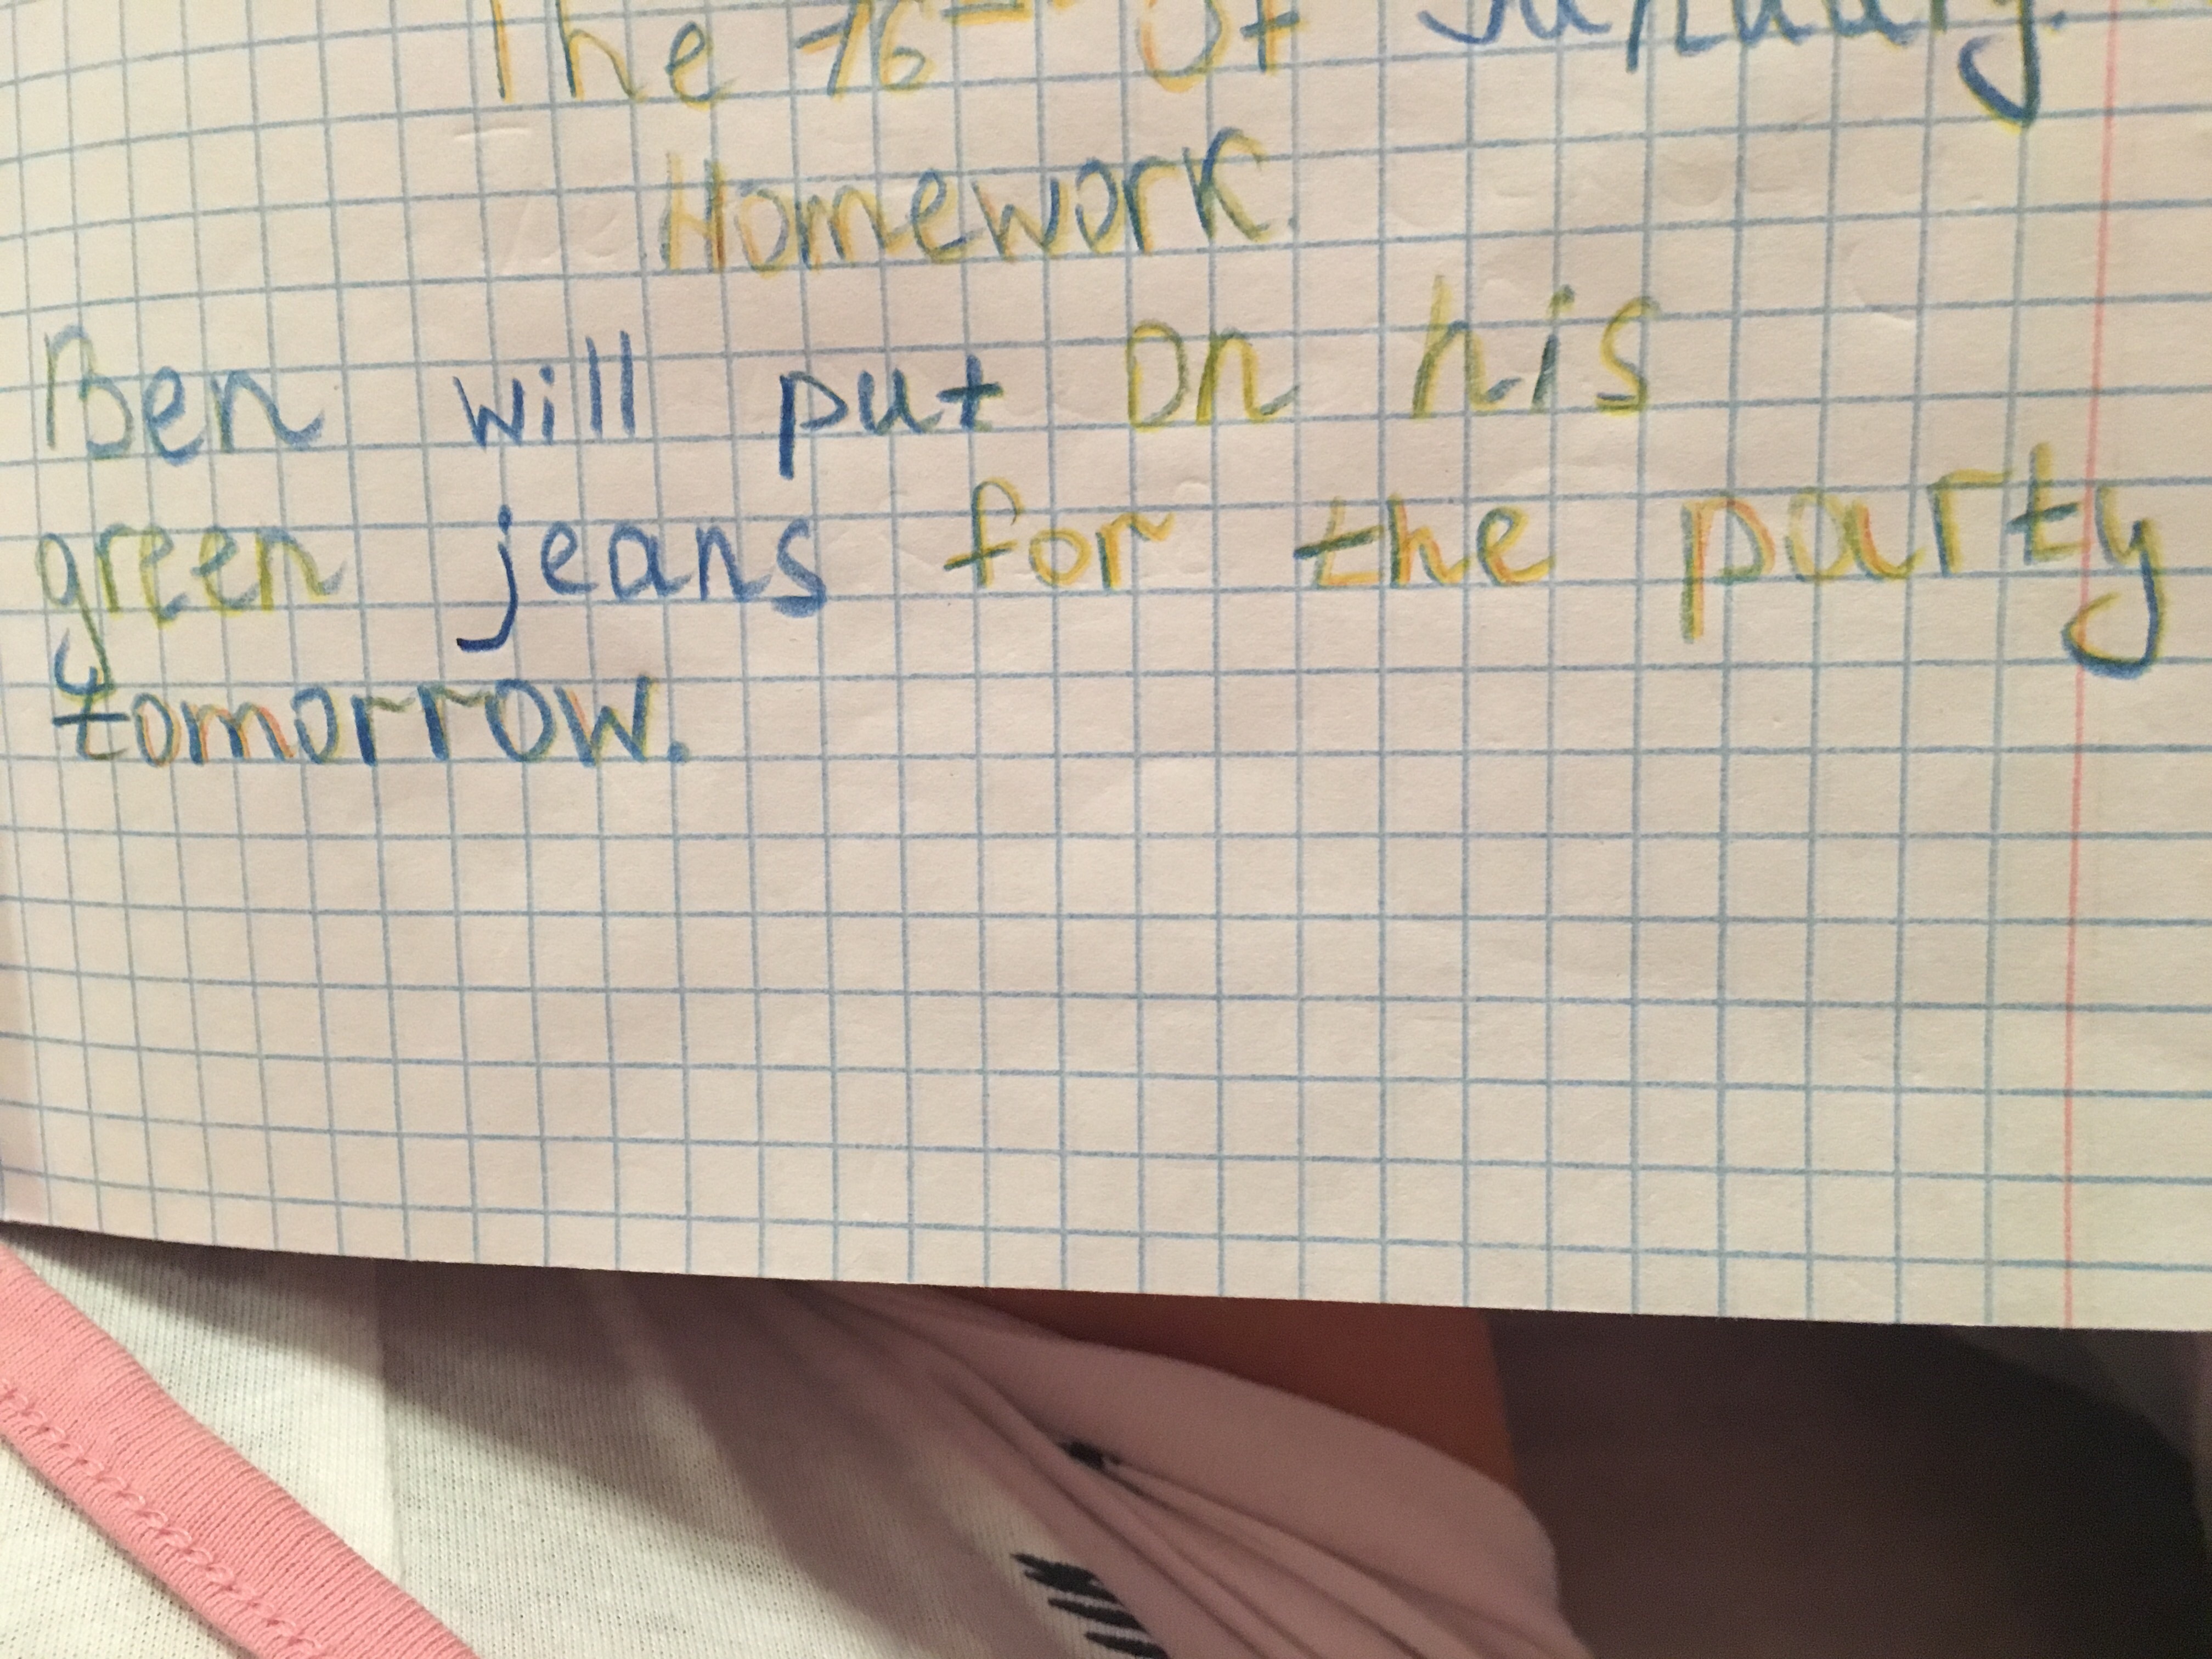 The 16th of January.
Homework.
Ben will put on his
green jeans for the party
tomorrow.